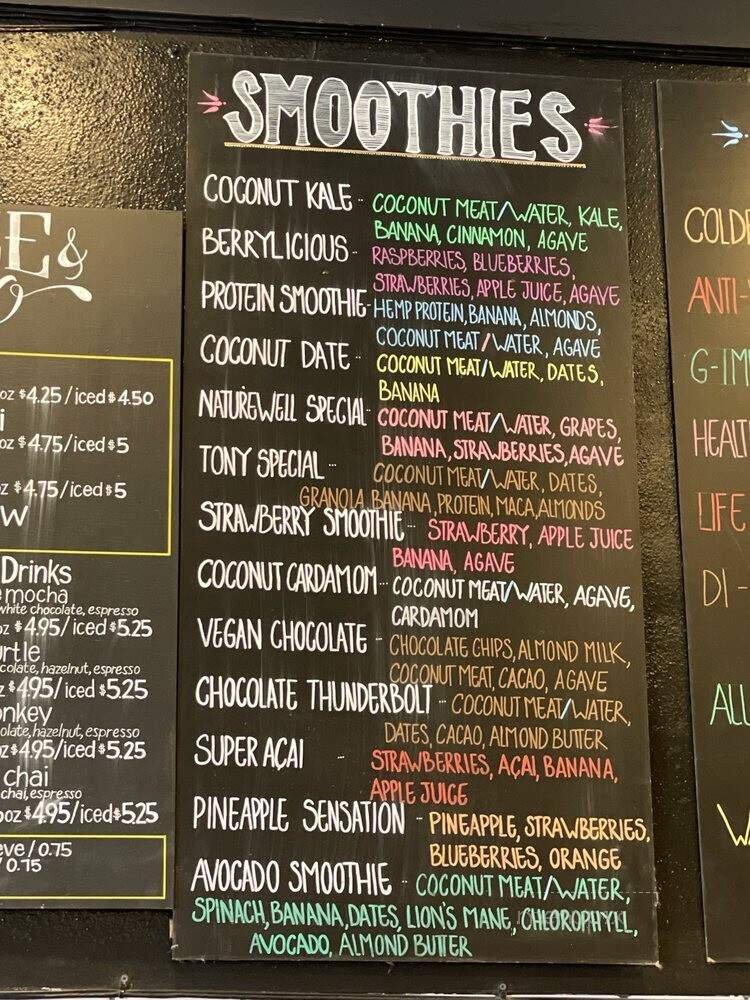 E &
oz $4.25 / iced $4.50
i
oz $4.75/iced $5
z $4.75/iced $5
W
Drinks
mocha
white chocolate, espresso
oz $4.95/iced $5.25
rtle
colate, hazelnut, espresso
z $4.95/ iced $5.25
nkey
olate, hazelnut, espresso
z $4.95/iced $5.25
chai
chai, espresso
oz $4.95/iced $5.25
eve / 0.75
/ 0.75
SMOOTHIES
COCONUT KALE - COCONUT MEAT/WATER, KALE,
BANANA, CINNAMON, AGAVE
BERRYLICIOUS - RASPBERRIES, BLUEBERRIES,
STRAWBERRIES, APPLE JUICE, AGAVE
PROTEIN SMOOTHIE - HEMP PROTEIN, BANANA, ALMONDS,
COCONUT MEAT/WATER, AGAVE
COCONUT DATE - COCONUT MEAT/WATER, DATES,
BANANA
NATUREWELL SPECIAL - COCONUT MEAT/WATER, GRAPES,
BANANA, STRAWBERRIES, AGAVE
TONY SPECIAL - COCONUT MEAT/WATER, DATES,
GRANOLA, BANANA, PROTEIN, MACA, ALMONDS
STRAWBERRY SMOOTHIE - STRAWBERRY, APPLE JUICE
BANANA, AGAVE
COCONUT CARDAMOM - COCONUT MEAT/WATER, AGAVE,
CARDAMOM
VEGAN CHOCOLATE - CHOCOLATE CHIPS, ALMOND MILK,
COCONUT MEAT, CACAO, AGAVE
CHOCOLATE THUNDERBOLT - COCONUT MEAT/WATER,
DATES, CACAO, ALMOND BUTTER
SUPER AÇAI - STRAWBERRIES, AÇAI, BANANA,
APPLE JUICE
PINEAPPLE SENSATION - PINEAPPLE, STRAWBERRIES,
BLUEBERRIES, ORANGE
AVOCADO SMOOTHIE - COCONUT MEAT/WATER,
SPINACH, BANANA, DATES, LION'S MANE, CHLOROPHYLL,
AVOCADO, ALMOND BUTTER
COLD
ANTI-
G-IM
HEALT
LIFE
DI -
ALL
WA